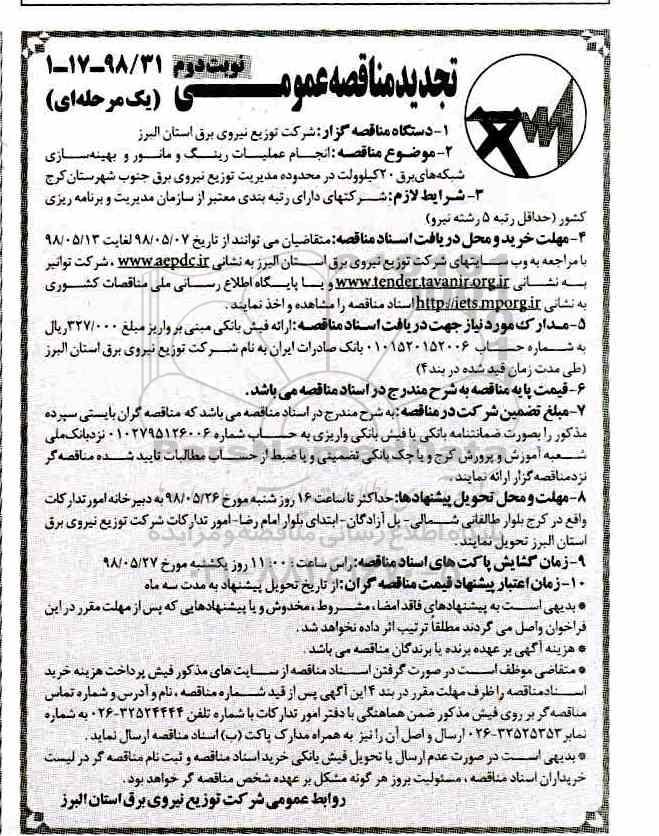 تجدید مناقصه عمومی
نوبت دوم ۹۸/۳۱-۱۷-۱
(یک مرحله‌ای)
۱-دستگاه مناقصه گزار: شرکت توزیع نیروی برق استان البرز
۲-موضوع مناقصه: انجام عملیات رینگ و مانور و بهینه‌سازی
شبکه‌های برق ۲۰کیلوولت در محدوده مدیریت توزیع نیروی برق جنوب شهرستان کرج
۳-شرایط لازم: شرکتهای دارای رتبه بندی معتبر از سازمان مدیریت و برنامه ریزی
کشور (حداقل رتبه ۵ رشته نیرو)
۴-مهلت خرید و محل دریافت اسناد مناقصه: متقاضیان می توانند از تاریخ ۹۸/۰۵/۰۷ لغایت ۹۸/۰۵/۱۳
با مراجعه به وب سایتهای شرکت توزیع نیروی برق استان البرز به نشانی www.aepdc.ir ، شرکت توانیر
به نشانی www.tender.tavanir.org.ir و یا پایگاه اطلاع رسانی ملی مناقصات کشوری
به نشانی http://iets.mporg.ir اسناد مناقصه را مشاهده و اخذ نمایند .
۵-مدارک مورد نیاز جهت دریافت اسناد مناقصه: ارائه فیش بانکی مبنی بر واریز مبلغ ۳۲۷/۰۰۰ریال
به شماره حساب ۰۱۰۱۵۲۰۱۵۲۰۰۶ بانک صادرات ایران به نام شرکت توزیع نیروی برق استان البرز
(طی مدت زمان قید شده در بند۴)
۶-قیمت پایه مناقصه به شرح مندرج در اسناد مناقصه می باشد.
۷-مبلغ تضمین شرکت در مناقصه: به شرح مندرج در اسناد مناقصه می باشد که مناقصه گران بایستی سپرده
مذکور را بصورت ضمانتنامه بانکی یا فیش بانکی واریزی به حساب شماره ۰۱۰۲۷۹۵۱۲۶۰۰۶ نزد بانک ملی
شعبه آموزش و پرورش کرج و یا چک بانکی تضمینی و یا ضبط از حساب مطالبات تایید شده مناقصه گر
نزد مناقصه گزار ارائه نمایند .
۸-مهلت و محل تحویل پیشنهادها: حداکثر تا ساعت ۱۶ روز شنبه مورخ ۹۸/۰۵/۲۶ به دبیرخانه امور تدارکات
واقع در کرج بلوار طالقانی شمالی- پل آزادگان-ابتدای بلوار امام رضا-امور تدارکات شرکت توزیع نیروی برق
استان البرز تحویل نمایند .
۹-زمان گشایش پاکت های اسناد مناقصه: راس ساعت : ۱۱:۰۰ روز یکشنبه مورخ ۹۸/۰۵/۲۷
۱۰-زمان اعتبار پیشنهاد قیمت مناقصه گران: از تاریخ تحویل پیشنهاد به مدت سه ماه
* بدیهی است به پیشنهادهای فاقد امضا، مشروط ، مخدوش و یا پیشنهادهایی که پس از مهلت مقرر در این
فراخوان واصل می گردند مطلقاً ترتیب اثر داده نخواهد شد .
* هزینه آگهی بر عهده برنده یا برندگان مناقصه می باشد .
* متقاضی موظف است در صورت گرفتن اسناد مناقصه از سایت های مذکور فیش پرداخت هزینه خرید
اسناد مناقصه را ظرف مهلت مقرر در بند ۴ این آگهی پس از قید شماره مناقصه ، نام و آدرس و شماره تماس
مناقصه گر بر روی فیش مذکور ضمن هماهنگی با دفتر امور تدارکات با شماره تلفن ۳۲۵۲۴۴۴۴-۰۲۶ به شماره
نمابر ۳۲۵۲۵۳۵۳-۰۲۶ ارسال و اصل آن را نیز به همراه مدارک پاکت (ب) اسناد مناقصه ارسال نماید .
* بدیهی است در صورت عدم ارسال یا تحویل فیش بانکی خرید اسناد مناقصه و ثبت نام مناقصه گر در لیست
خریداران اسناد مناقصه ، مسئولیت بروز هر گونه مشکل بر عهده شخص مناقصه گر خواهد بود .
روابط عمومی شرکت توزیع نیروی برق استان البرز